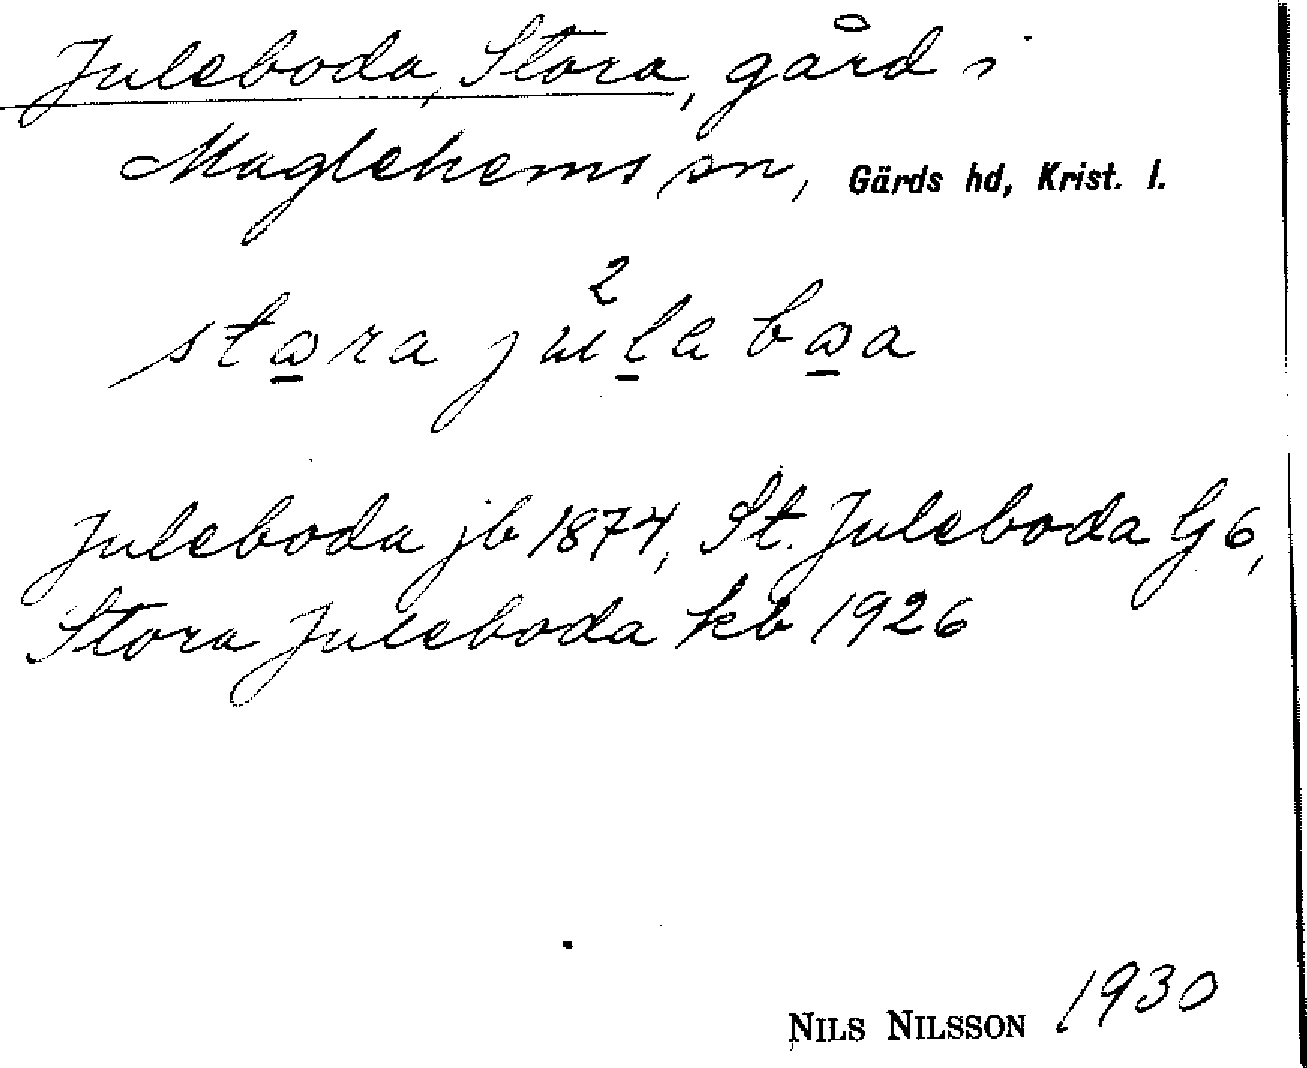 Juleboda, Stora, gård i
Maglehems sn, Gärds hd, Krist. l.
Juleboda jb 1874, St. Juleboda G 6,
Stora Juleboda kb 1926
NILS NILSSON 1930